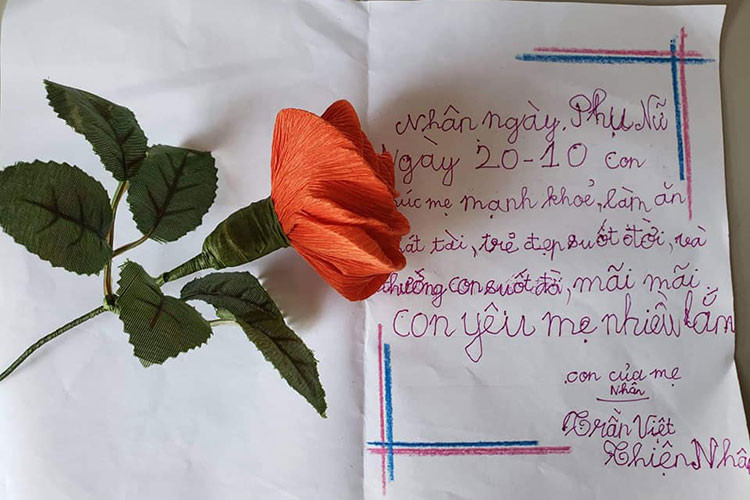 Nhân ngày. Phụ Nữ
Ngày 20-10 con
húc mẹ mạnh khoẻ, làm ăn
hát tài, trẻ đẹp suốt đời, và
thưởng con suốt đời, mãi mãi.
con yêu mẹ nhiều lắm
con của mẹ
Nhân
Trần Việt
Thiện Nhân